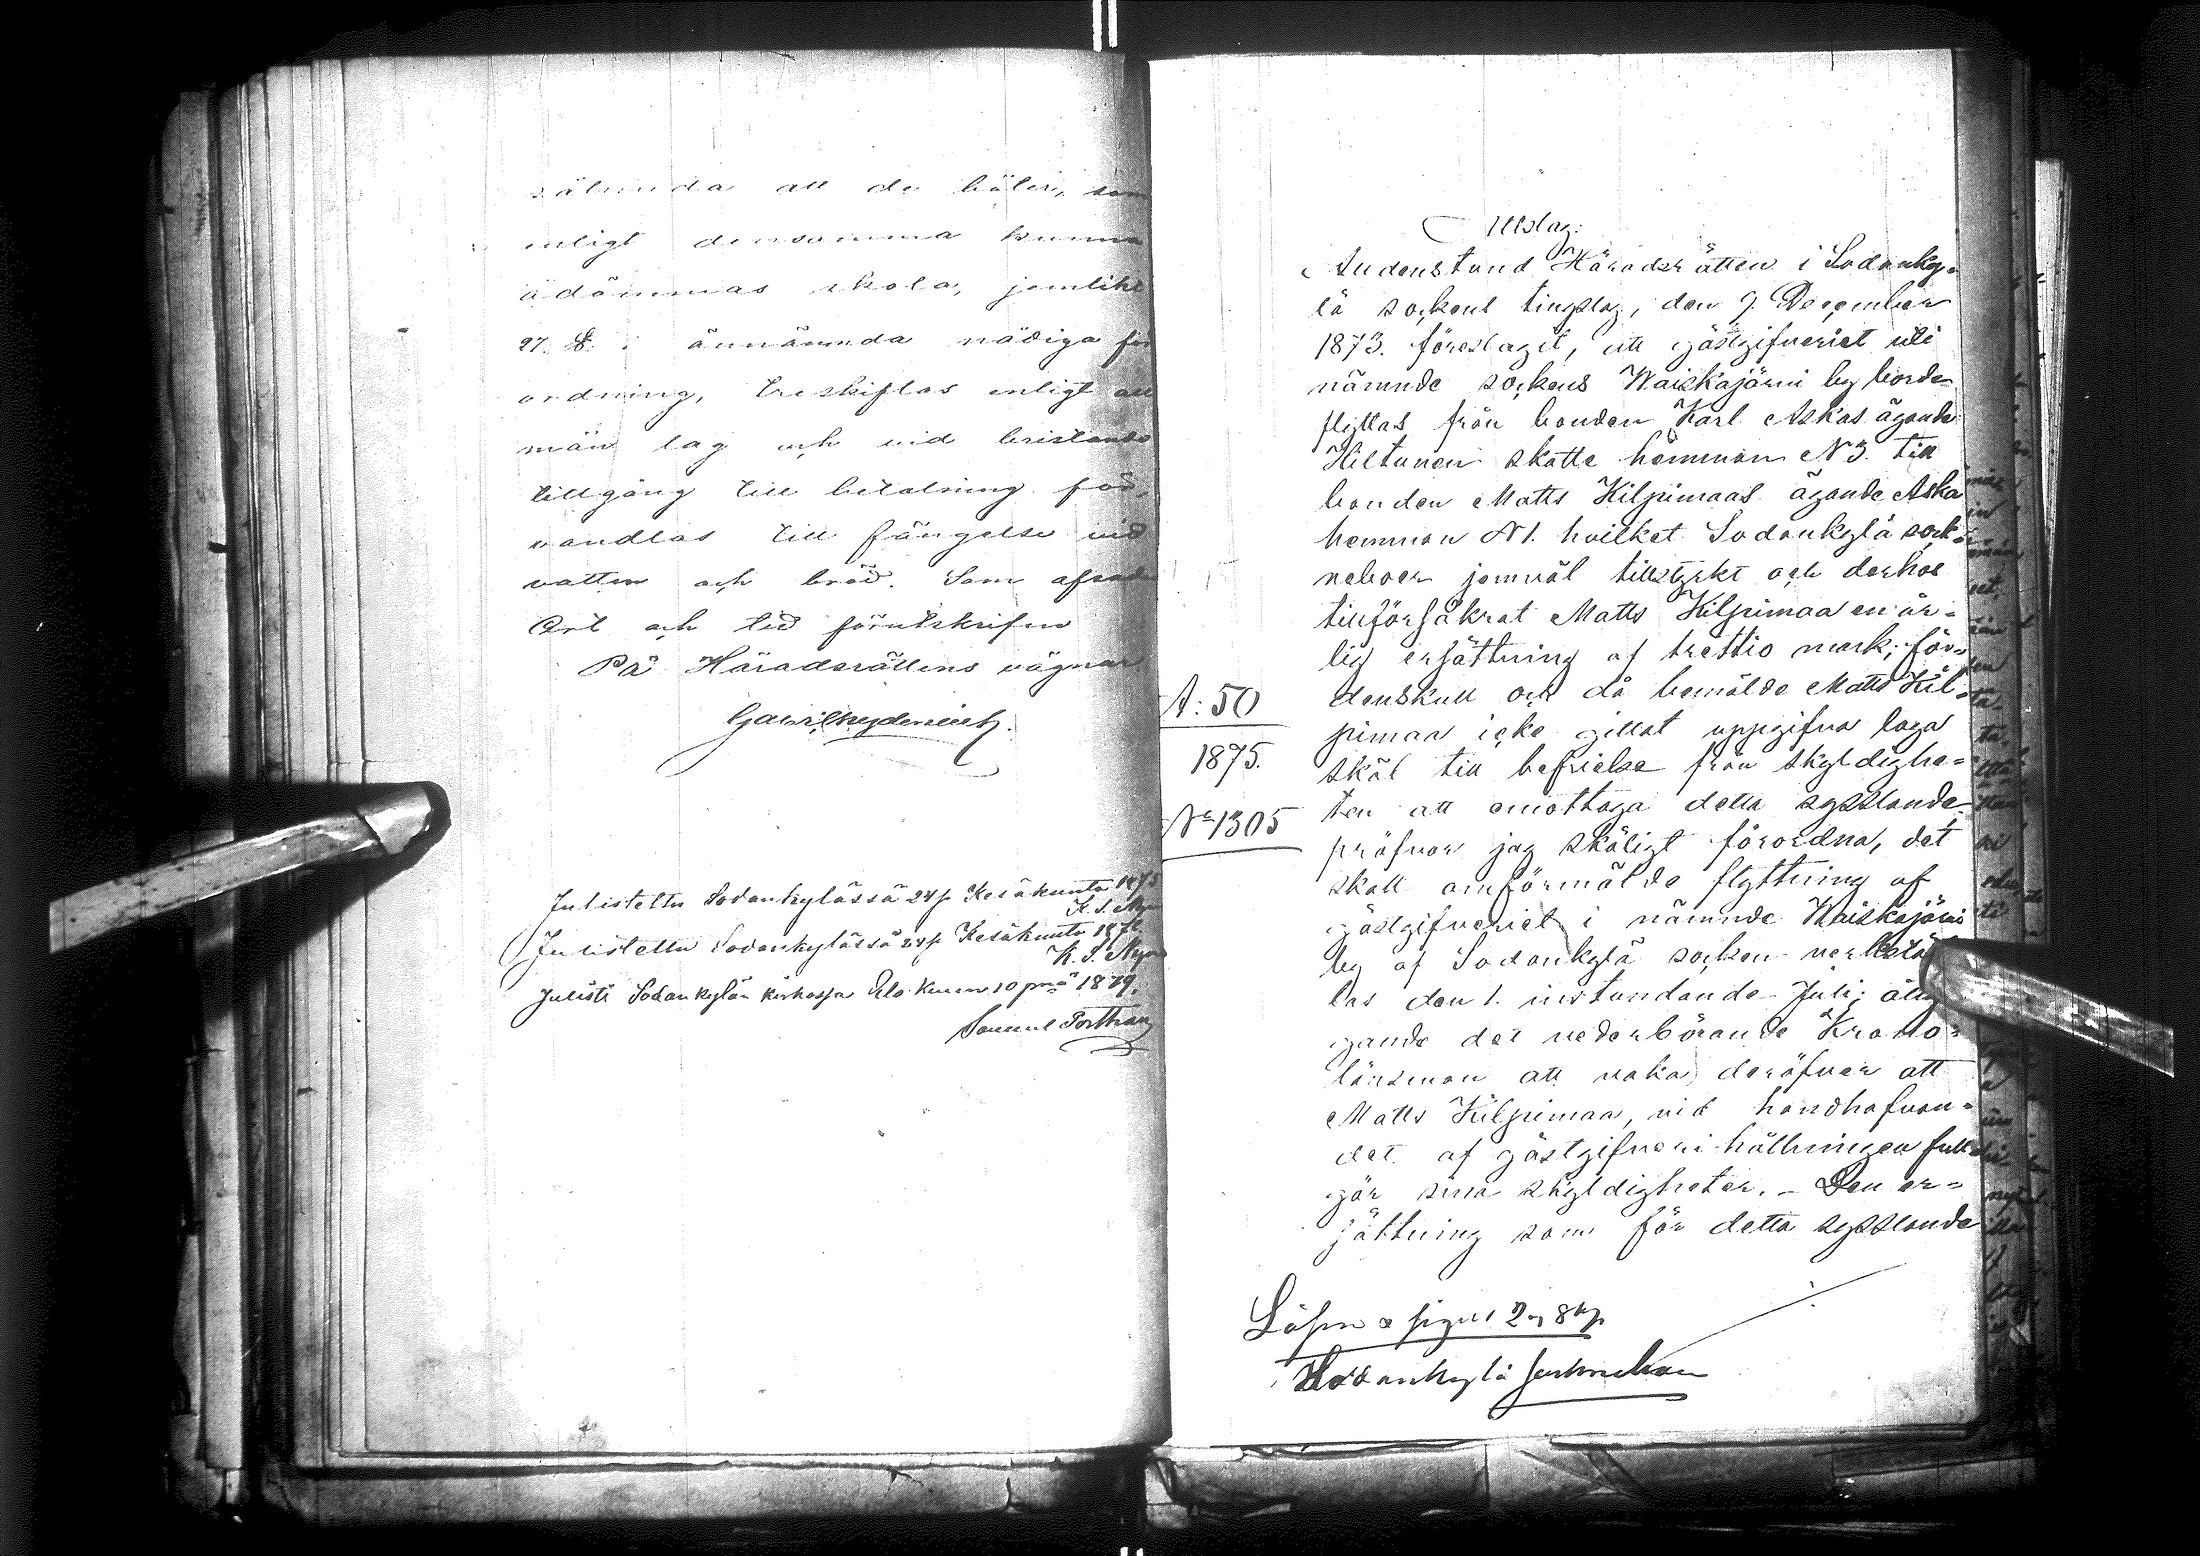 sålunda att de böter, som
enligt densamma kunna
ådömmas skola, jemlikt
27. §. i ännämnda nådiga för
ordning, treskiftas enligt all
män lag och vid bristande
tillgång till betalning för,
vandlas till fängelse vid
vatten och bröd. Som afsade
Ort och tid förutskrifne
På Häradsrättens vägnar
Julistettu Sodankylässä 24 p Kesäkuuta 1875
K. S. 
Julistettu Sodankylässä 24 p Kesäkuuta 18
K. S. 
Julisti Sodankylän kirkossa Elo kuun 10 pnä 1879.
Samuel
Utslag:
Häradsrätten i Sodanky-
lä sockens tingslag, den 9. December
1873. föreslagit, att gästgifveriet uti
nämnde sockens Waiskajärvi by borde
flyttas från bonden Karl Askas ägande
Hiltunen skatte hemman N 3. till
bonden Matts Kilpimaas ägande Aska
hemman N 1. hvilket Sodankylä sock-
neboer jemväl tillstyrkt och derhos
tillförsäkrat Matts Kilpimaa en år-
lig ersättning af trettio mark; för-
denskull och då bemälde Matts Kil-
pimaa icke gittat uppgifva laga
skäl till befrielse från skyldighe-
ten att emottaga detta sysslande
pröfvar jag skäligt förordna, det
skall omförmälde flyttning af
gästgifveriet i nämnde Waiskajärvi
by af Sodankylä socken verkstäl
las den 1. instundande Juli; ålig
gande det vederbörande Krono-
länsman att vaka deröfver att
Matts Kilpimaa, vid handhafvan-
det af gästgifveri hållningen full
gör sina skyldigheter. - Den er-
sättning som för detta sysslande
A: 50
1875.
No 1305
Sodankylä